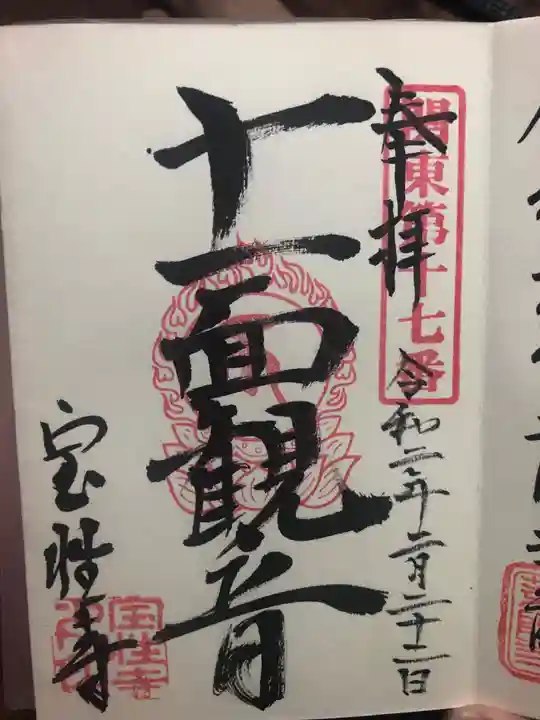 奉拝
關東第十七番
令和二年二月二十二日
十一面観音
宝性寺
宝性寺